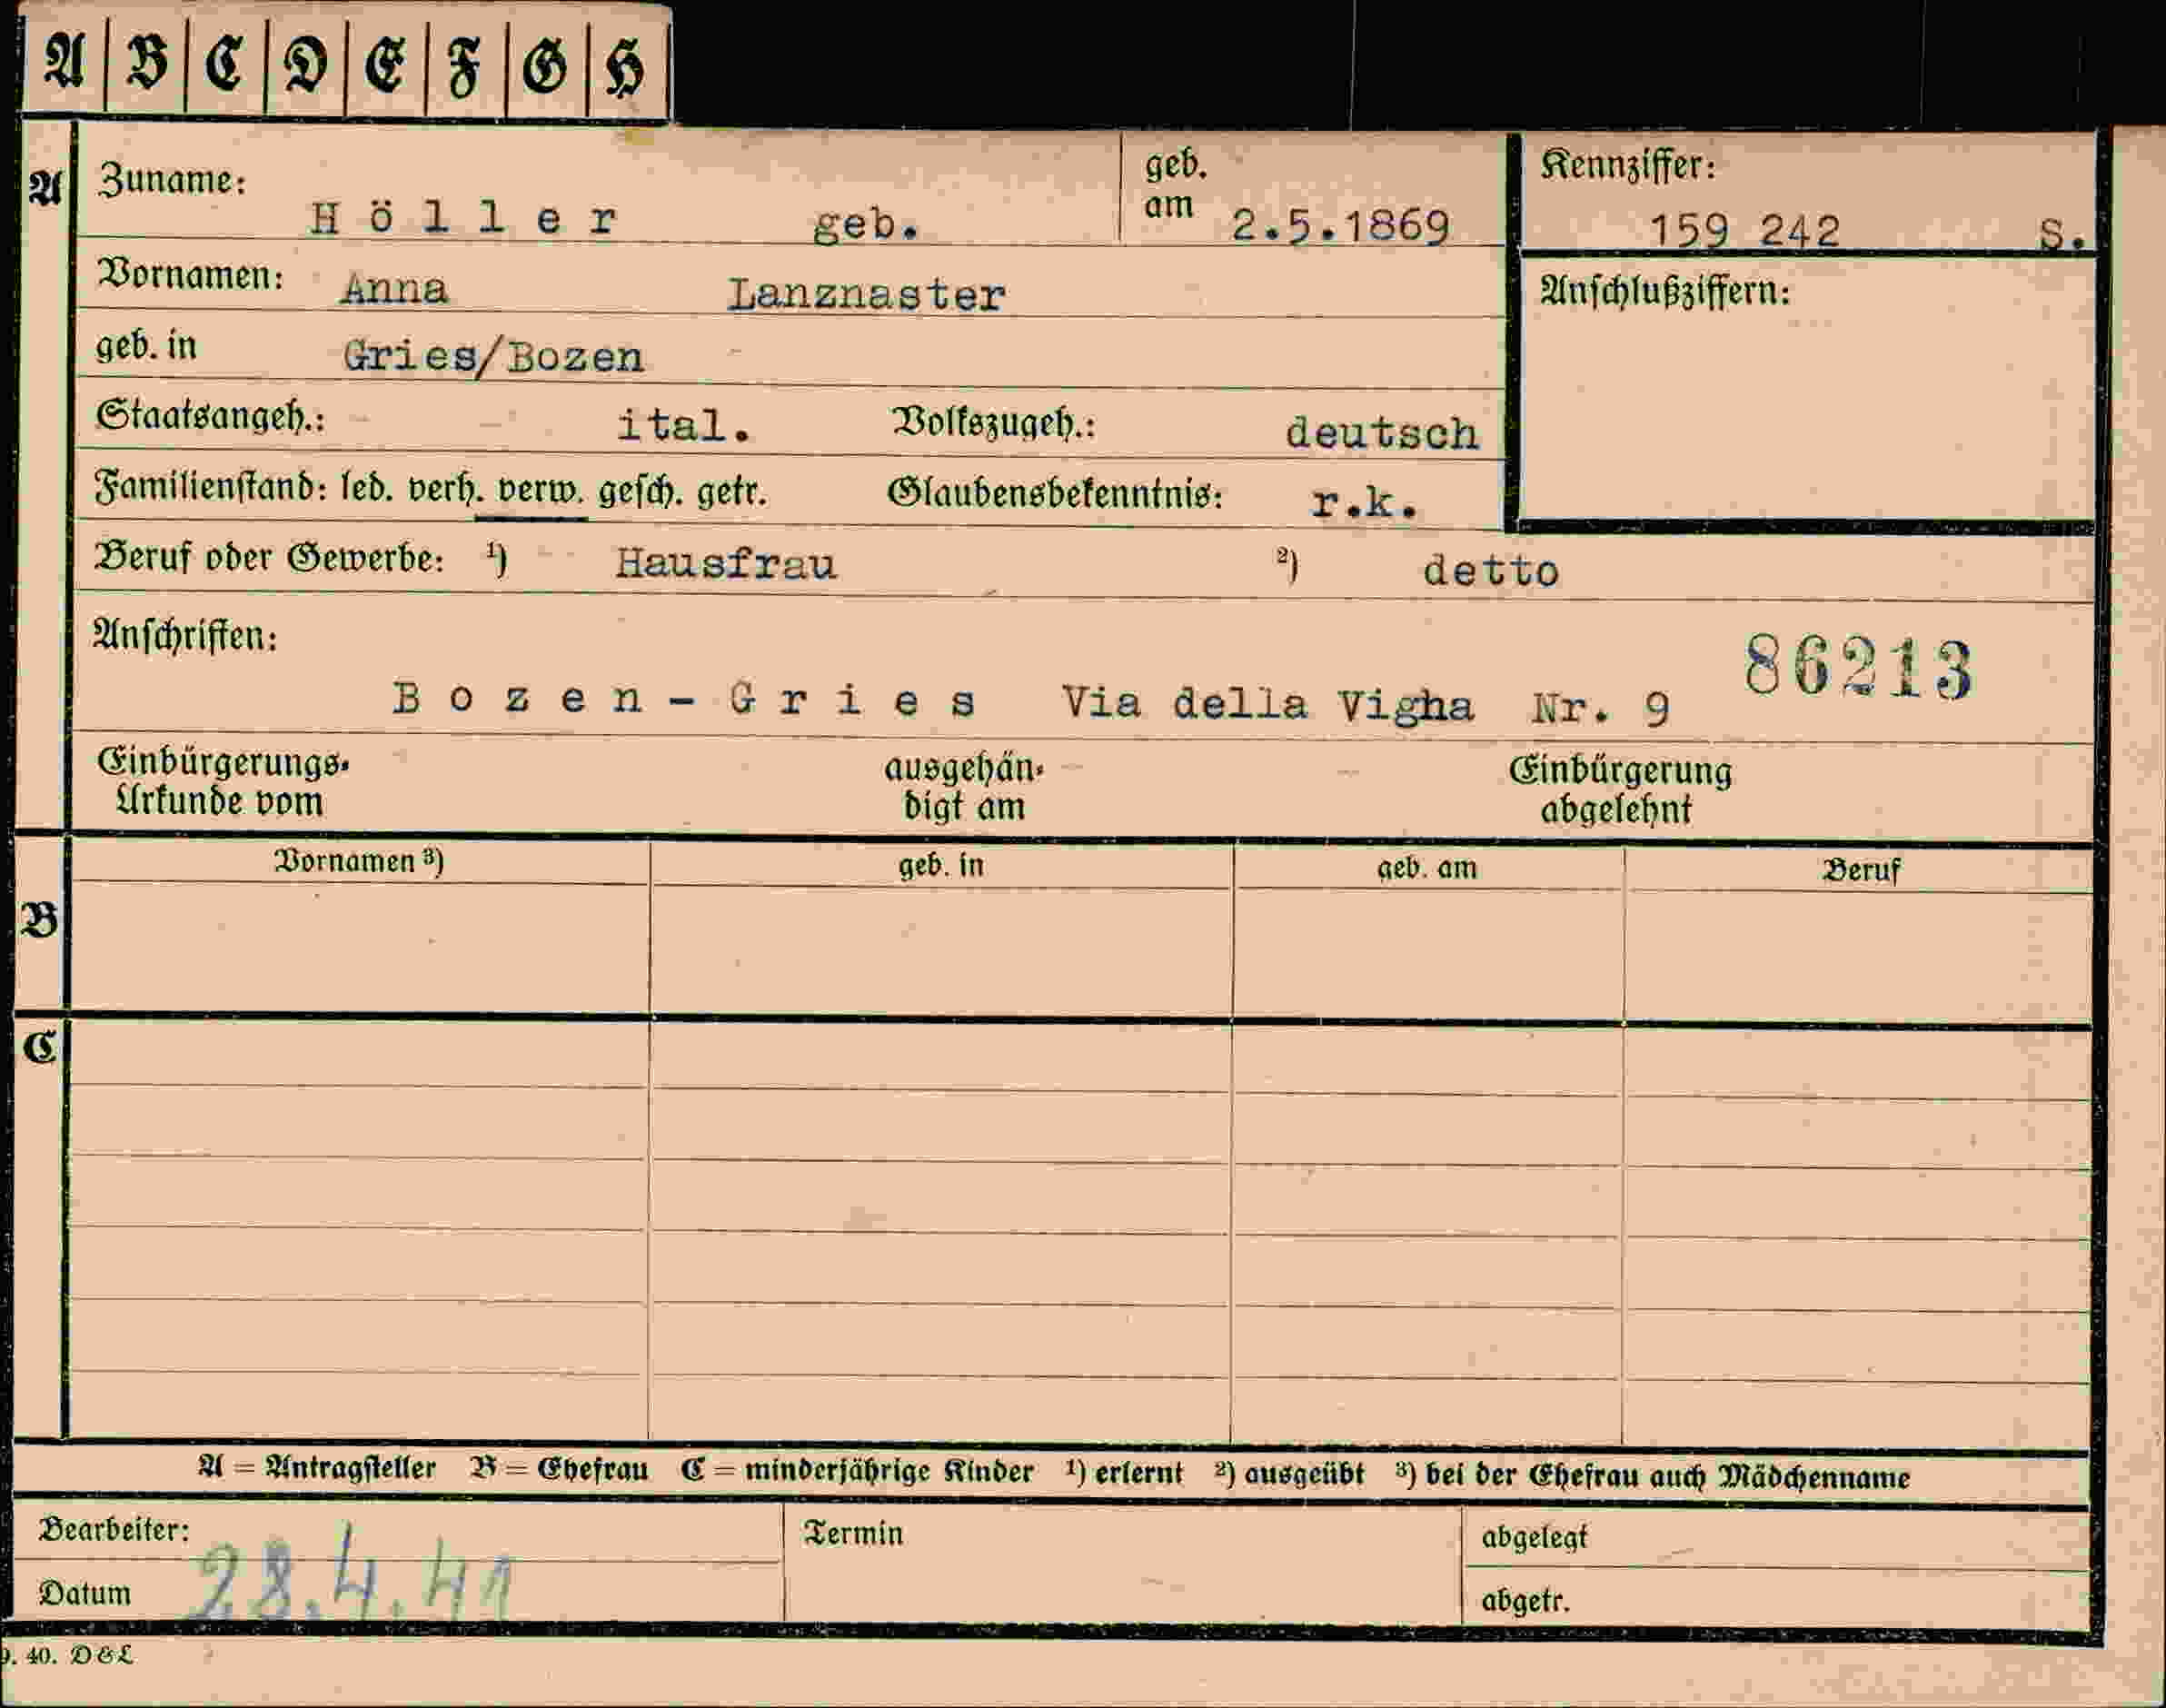 A B C D E F G H
A Zuname: Höller geb. geb. am 2.5.1869 Kennziffer: 159 242 S.
Vornamen: Anna Lanznaster Anschlußziffern:
geb. in Gries/Bozen
Staatsangeh.: ital. Volkszugeh.: deutsch
Familienstand: led. verh. verw. gesch. getr. Glaubensbekenntnis: r.k.
Beruf oder Gewerbe: ¹) Hausfrau ²) detto
Anschriften: 86213
Bozen-Gries Via della Vigha Nr. 9
Einbürgerungs- ausgehän- Einbürgerung
Urkunde vom digt am abgelehnt
Vornamen ³) geb. in geb. am Beruf
B
C
A = Antragsteller B = Ehefrau C = minderjährige Kinder ¹) erlernt ²) ausgeübt ³) bei der Ehefrau auch Mädchenname
Bearbeiter: Termin abgelegt
Datum 28.4.41 abgetr.
40. D&L